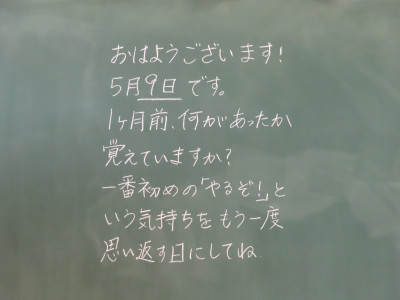 おはようございます!
5月9日です。
1ヶ月前、何があったか
覚えていますか?
一番初めの「やるぞ!」と
いう気持ちをもう一度
思い返す日にしてね